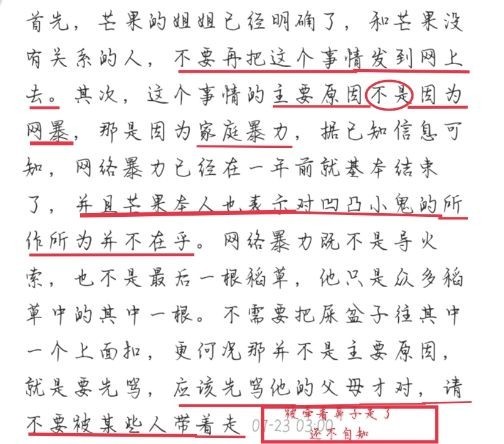 首先，芒果的姐姐已经明确了，和芒果没
有关系的人，不要再把这个事情发到网上
去。其次，这个事情的主要原因不是因为
网暴，那是因为家庭暴力，据已知信息可
知，网络暴力已经在一年前就基本结束
了，并且芒果本人也表示对凹凸小鬼的所
作所为并不在乎。网络暴力既不是导火
索，也不是最后一根稻草，他只是众多稻
草中的其中一根。不需要把尿盆子往其中
一个上面扣，更何况那并不是主要原因，
就是要先骂，应该先骂他的父母才对，请
不要被某些人带着走 07-23 03:00
被牵着鼻子是了
还不自知